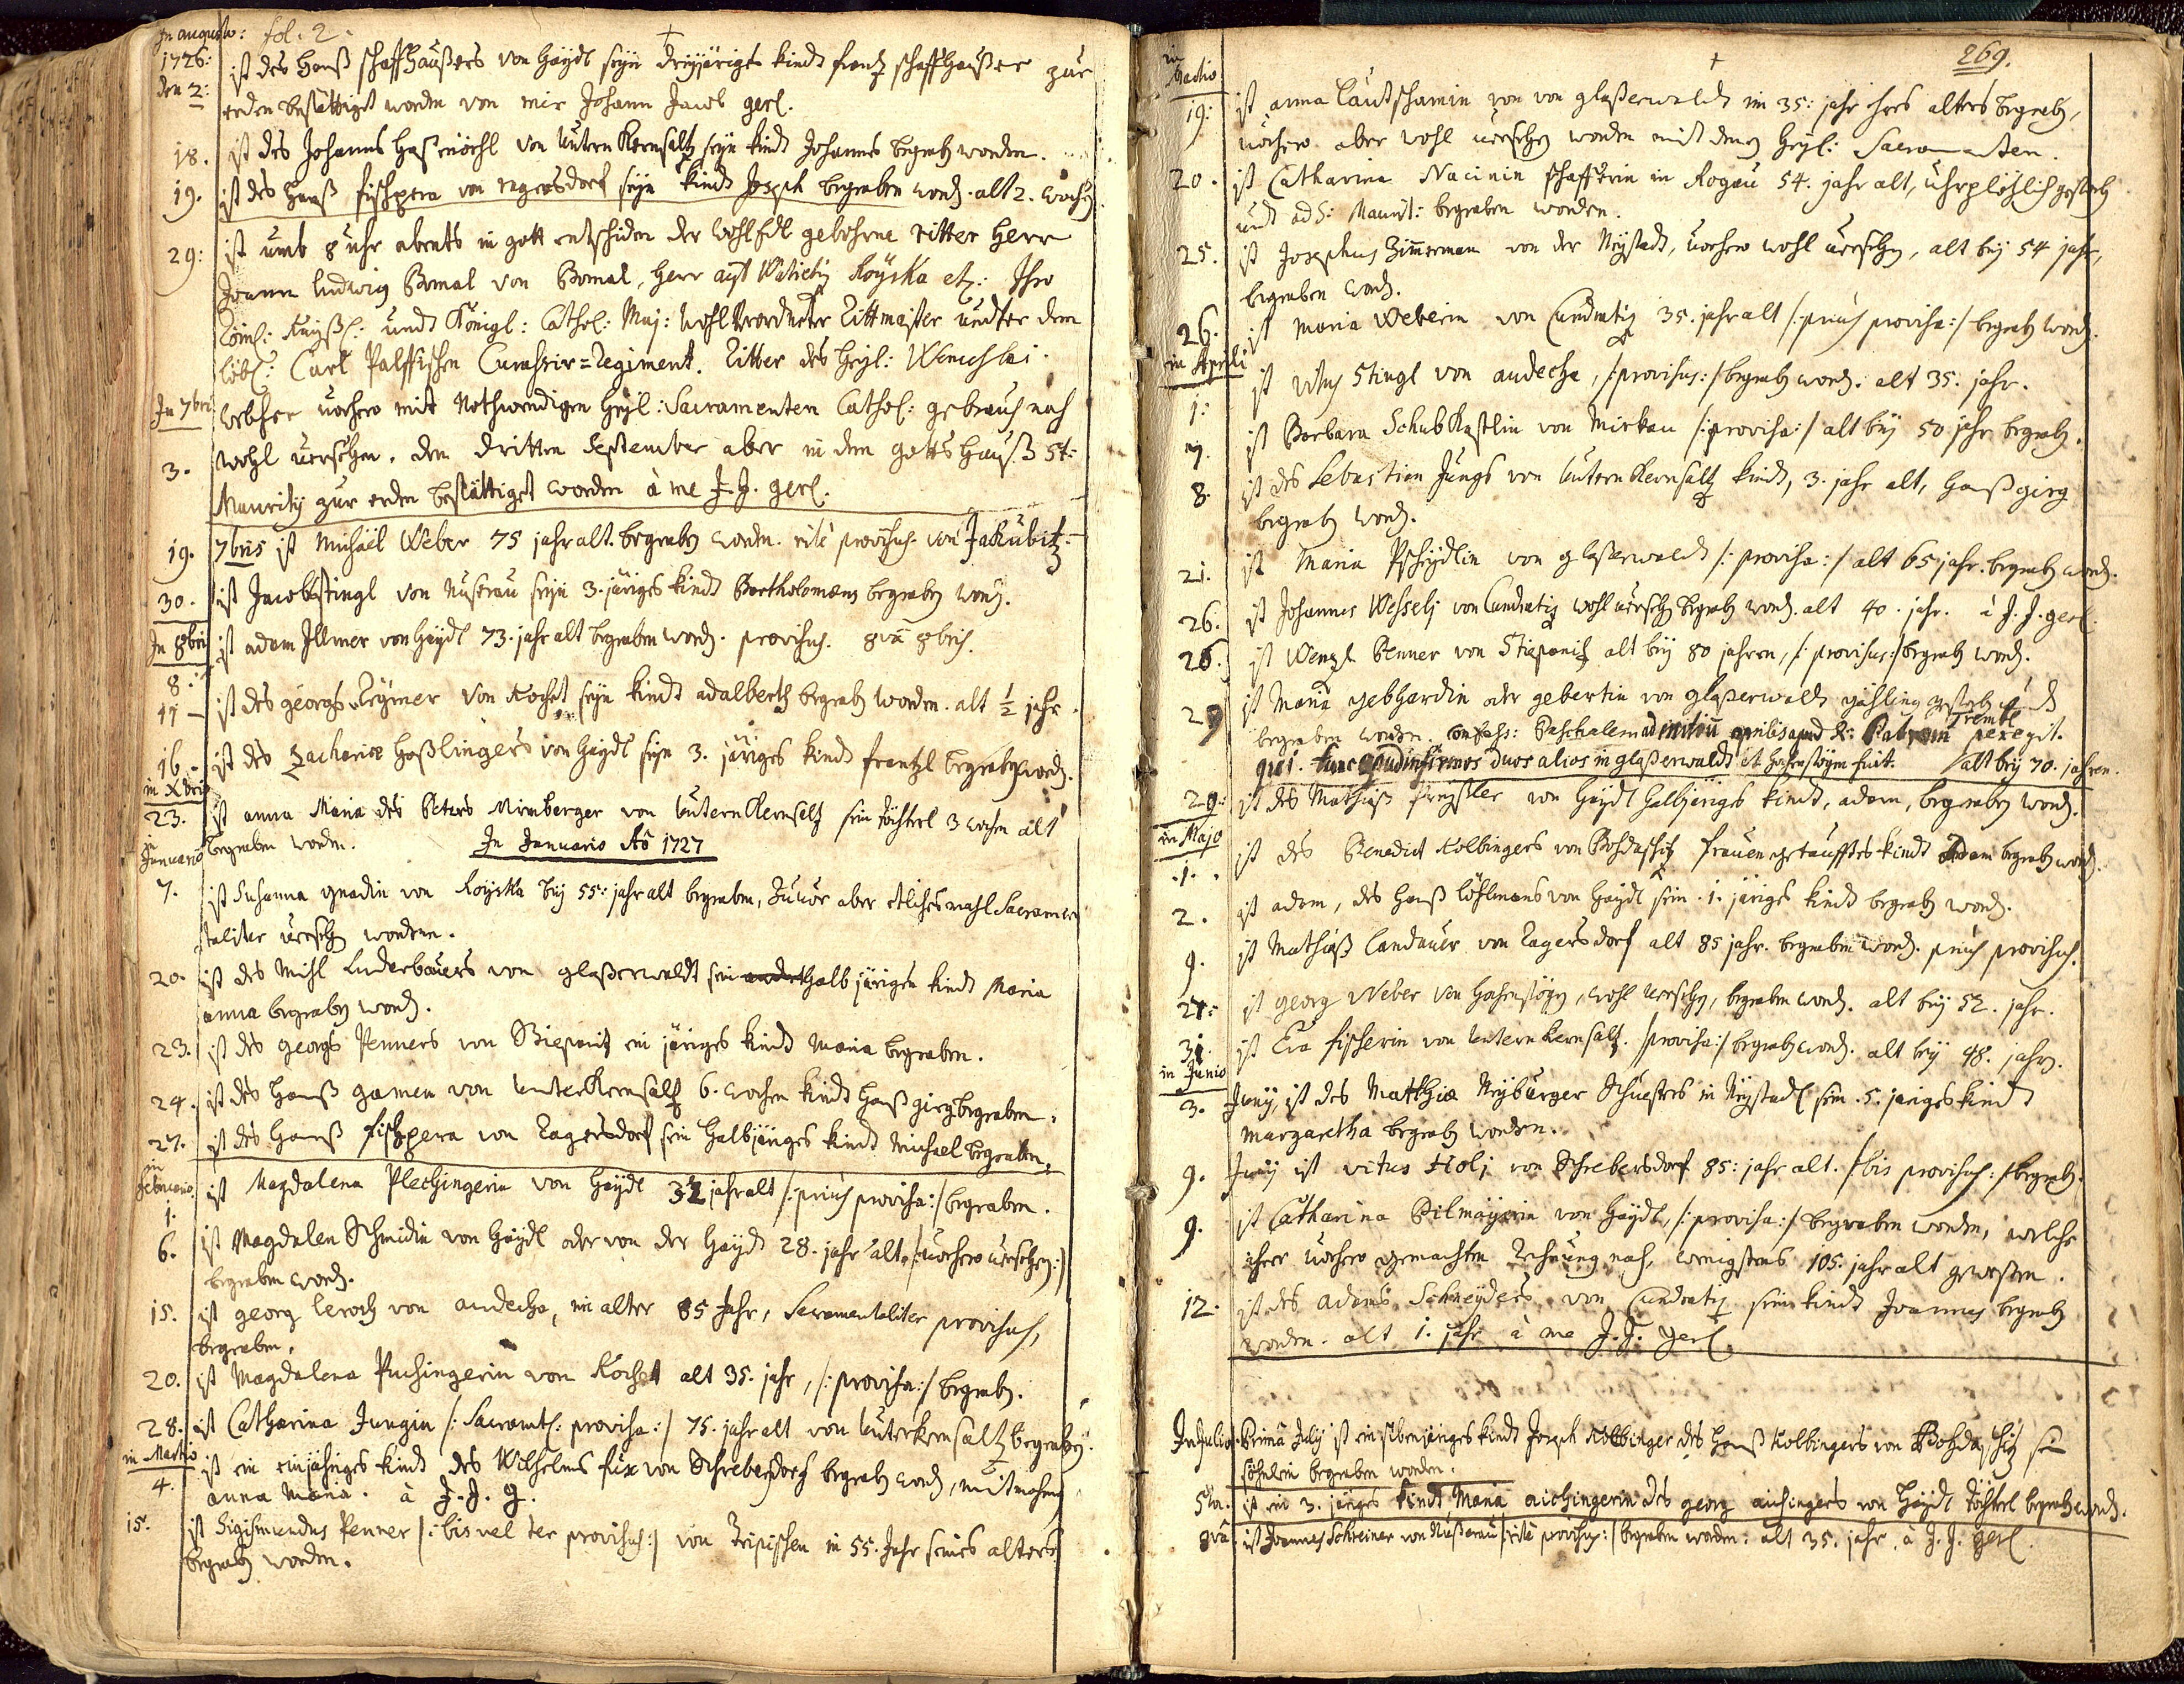 In augusto: fol. 2.
1726: ist des Hanß schaffhaußers von Haydl seyn dreyjäriges kindt frantz schaffhaußer zur
den 2: erden bestättiget worden von mir Johann Jacob gerl.
18. ist des Johannes Haßenöhl von Untern Kernsaltz seyn kindt Johannes begraben worden.
19. ist des Hanß fischpera von regersdorf seyn kindt Joseph begraben word. alt 2. wochen
29: ist umb 8 uhr abents in gott entschiden der wohl Edl gebohrne ritter Herr
Joann ludwig Bomal von Bomal, Herr auf Watietiz Royska etz: Ihro
Röml: Kayßl: undt Königl: Cathol: Maj: wohl Verordneter Rittmaster undter dem
löbl: Carl Palffischen Curassir=Regiment. Ritter des Heyl: Wenceslai.
In 7bri welcher vorhero mit Nothwendigen Heyl: Sacramenten Cathol: gebrauch nach
3. wohl versehen. den dritten September aber in dem gotts Hauß St:
Maurity zur erden bestättiget worden à me J. J. gerl.
19. 7bris ist Michäel Weber 75 jahr alt. begraben worden. ritè provisus. von Jakubitz.
30. ist Jacob Stingl von Nuserau seyn 3. järiges kindt Bartholomæus begraben word.
In 8bri ist adam Illmer von Haydl 73. jahr alt begraben word. provisus. 8vâ 8bris.
8.
11 ist des georgs Reymer von Kochet seyn kindt adalbertus begraben worden. alt ½ jahr.
16. ist des Zachariæ Haßlingers von Haydl seyn 3. järiges kindt frantzl begraben word.
in Xbri
23. ist anna Maria des Peters Mirnberger von Untern Kernsaltz sein döchterl 3 wochen alt
begraben worden. In Januario Aõ 1727
in Januario
7. ist Susanna gnadin von Royska bey 55: jahr alt begraben, Zuvor aber etliches mahl Sacramen
taliter versehen worden.
20. ist des Mihl Luderbauers von glaßerwaldt sein halb järigen kindt Maria
anna begraben word.
23. ist des georgs Penners von Stiepanitz ein järiges kindt Maria begraben.
24. ist des Hanß gamen von UnterKernsaltz 6. wochen kindt Hanß girg begraben.
27. ist des Hanß fischpera von Ragersdorf sein halbjäriges kindt Michael begraben.
in Februario
1. ist Magdalena Plechingerin von Haydl 32 jahr alt /: priùs provisa :/ begraben.
6. ist Magdalen Schmidin von Haydl oder von der Hayd 28. jahr alt. /: vorhero versehen :/
begraben word.
15. ist georg lerch von audecha, im alter 85 Jahr, Sacramentaliter provisus,
begraben.
20. ist Magdalena Puchingerin von Kochet alt 35. jahr, /: provisa :/ begraben.
28. ist Catharina Jungin /: Sacramtl: provisa :/ 75. jahr alt von Unterkernsaltz begraben.
in Martio ist ein einjähriges kindt des Wilhelms fux von Schrebersdorf begraben word, mit nahmen
4. anna Maria. à J. J. g.
15. ist Sigismundus Penner /: bis vel ter provisus :/ von Zripischen in 55. Jahr seines alters
begraben worden.
269.
in Martio
19: ist anna lautschamin von glaßerwaldt im 35: jahr ihres alters begraben,
vorhero aber wohl versehen worden mit denen Heyl: Sacramenten.
20. ist Catharina Nacinin schafferin in Rogau 54. jahr alt, uhrplötzlich gestorben
undt ad S: Maurit: begraben worden.
25. ist Josephus Zimerman von der Neystadt, vorhero wohl versehen, alt bey 54 jahr,
begraben word.
26. ist Maria Weberin von Cundratitz 35. jahr alt /: priùs provisa :/ begraben word.
in Aprili
1. ist vitus Stingl von audecha, /: provisus :/ begraben word. alt 35. jahr.
7. ist Barbara Schubkastlin von Mirkau /: provisa :/ alt bey 50 jahr begraben.
8. ist des Sebastian Jungs von Untern Kernsaltz kindt, 3. jahr alt, Hanß girg
begraben word.
21. ist Maria Pscheydlin von glaßerwaldt /: provisa :/ alt 65 jahr. begraben word.
26. ist Johannes Wessely von Cundratitz wohl versehen begraben word. alt 40. jahr. à J. J. gerl.
26. ist Wenzl Penner von Stiepanitz alt bey 80 jahren, /: provisus :/ begraben word.
29 ist Maria gebhardin oder gebertin von glaßerwaldt gähling gestorben undt
begraben worden. confess: Paschalem ad initiũ aprilis apud R: Patrem Trembl peregit.
qui tunc apud infirmos duos alios in glaßerwaldt et Hahnstögn fuit. alt bey 70. jahren.
29: ist des Mathiaß freystler von Haydl halbjäriges kindt, adam, begraben word.
in Majo
1. ist des Benedict Kolbingers von Bohdaschitz frauen getaufftes kindt Adam begraben word.
2. ist adam, des Hanß löhlmans von Haydl sein 1. järiges kindt begraben word.
9. ist Mathiaß landauer von Ragersdorf alt 85 jahr. begraben word. priùs provisus.
27: ist georg Weber von Hahnstögn, wohl versehen, begraben word. alt bey 52. jahr.
31. ist Eva fischerin von Untern Kernsaltz. /: provisa :/ begraben word. alt bey 48. jahr.
in Junio
3. Juny, ist des Matthiæ Neyburger Schusters in Neystadl sein .5. jariges kindt
Margaretha begraben worden.
9. Juny ist vitus Holj von Schrebersdorf 85: jahr alt. /: bis provisus :/ begraben.
9. ist Catharina Pilmayrin von Haydl, /: provisa :/ begraben worden, welche
ihrer vorhero gemachten Rechnung nach, wenigstens 105. jahr alt gewesen.
12. ist des Adams Schneyders von Cundratitz sein kindt Joannes begraben
worden. alt 1. jahr à me J. J. gerl
In Julio. Primâ July ist ein sibenjäriges kindt Joseph Kolbinger des Hanß Kolbingers von Bohdaschitz sein
söhnlein begraben worden.
5ta. ist ein 3. järiges kindt Maria aichingerin des georg aichingers von Haydl döchterl begraben word.
8vâ. ist Joannes Schreiner von Nußerau /: ritè provisus :/ begraben worden: alt 35. jahr. à J. J. gerl.